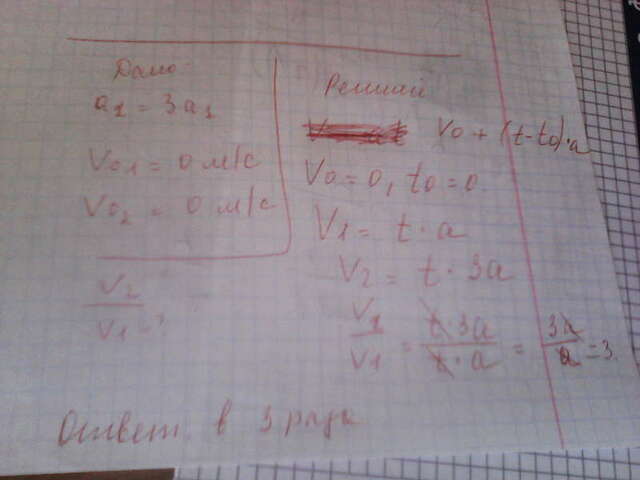 Дано
a2 = 3a1
V01 = 0 м/с
V02 = 0 м/с
V2
V1 = ?
Решение
V0 + (t - t0)·a
V0 = 0, t0 = 0
V1 = t · a
V2 = t · 3a
V2/V1 = t·3a/t·a = 3a/a = 3
Ответ в 3 раза